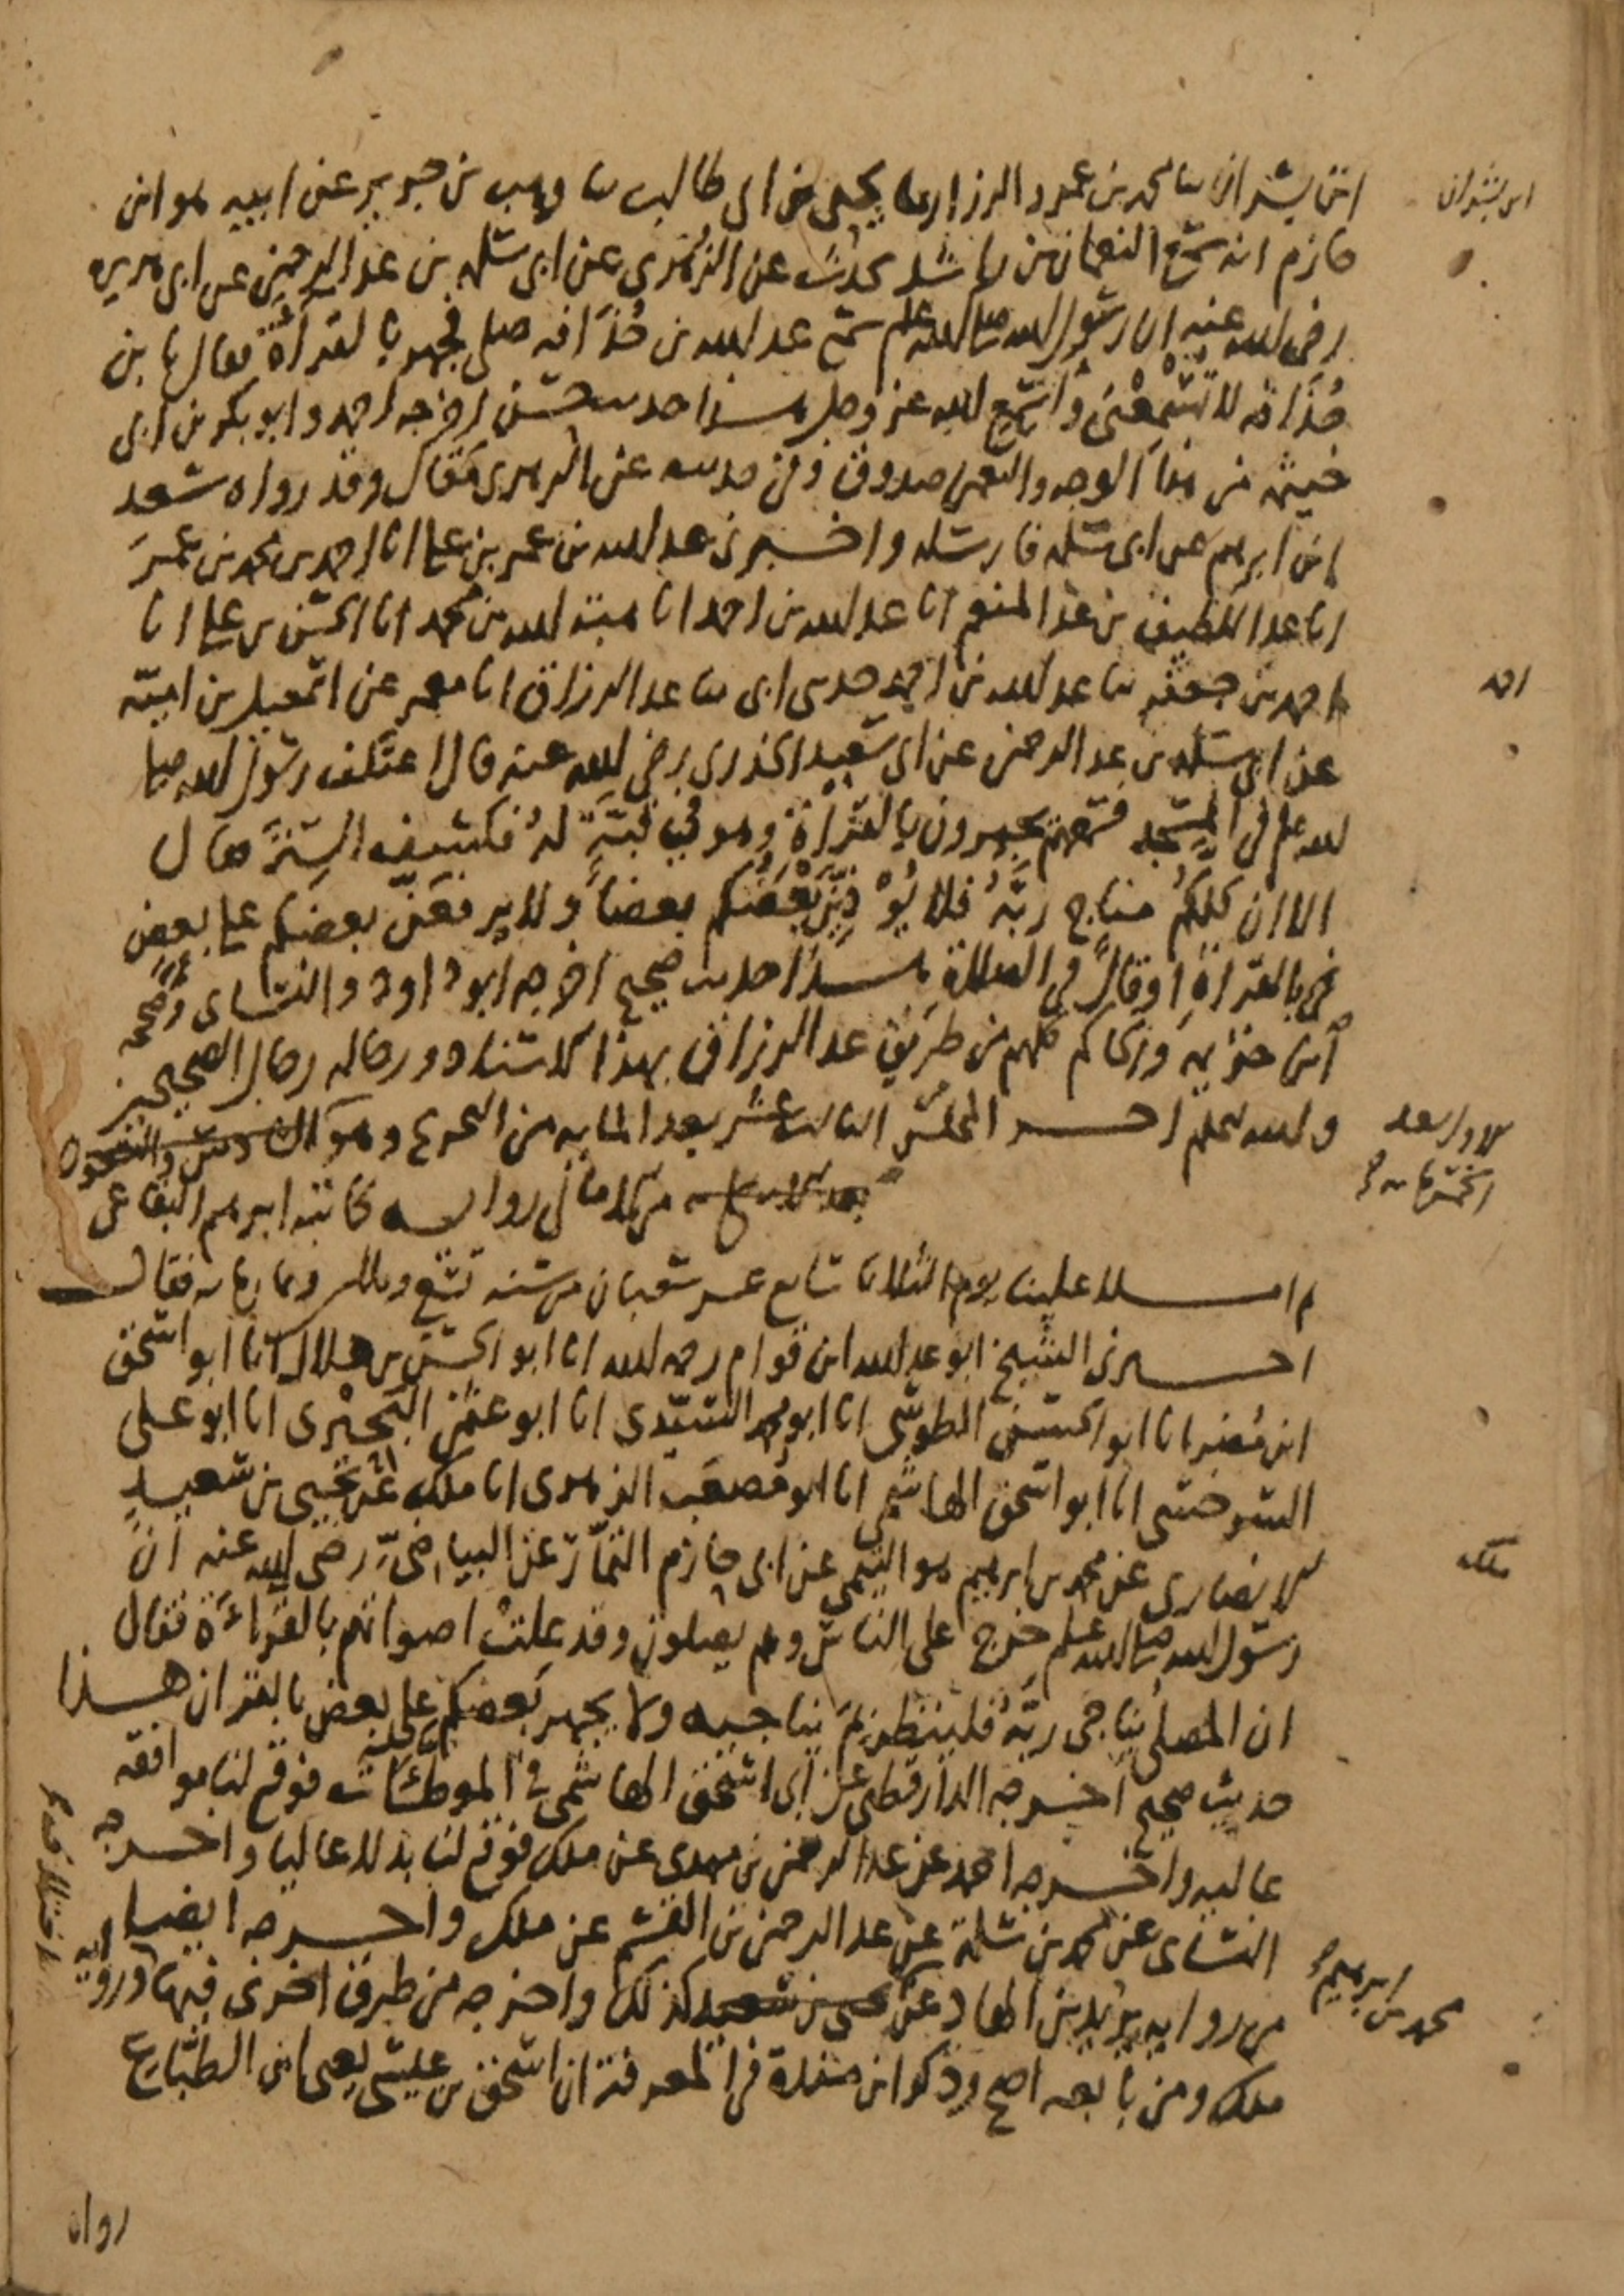 ابن بشران
ابن بشران ثنا محمد بن عمرو الرزاز ثنا يحيى بن ابي طالب ثنا وهب بن جرير عن ابيه هو ابن
حازم انه سمع النعمان بن راشد يحدث عن الزهري عن ابي سلمة بن عبد الرحمن عن ابي هريرة
رضي الله عنه ان رسول الله صلى الله عليه وسلم سمع عبد الله بن حُذَافه صلى فجهر بالقراءة فقال يا بن
حُذَافه لا تُسَمِّعْني وأسمع الله عز وجل هذا حديث حسن اخرجه احمد وابو بكر بن ابي
خيثمه من هذا الوجه والنعمن صدوق وفي حديثه عن الزهري مقال وقد رواه سعد
ابن ابرهيم عن ابي سلمة فارسله واخبرني عبد الله بن عمر بن علي انا احمد بن محمد بن عمر
انا عبد اللطيف بن عبد المنعم انا عبد الله بن احمد انا هبة الله بن محمد انا الحسن بن علي انا
احمد
احمد بن جعفر ثنا عبد الله بن احمد حدثني ابي ثنا عبد الرزاق انا معمر عن اسمعيل بن امية
عن ابي سلمة بن عبد الرحمن عن ابي سعيد الخدري رضي الله عنه قال اعتكف رسول الله صلى
الله عليه وسلم في المسجد فسمعهم يجهرون بالقراءة وهو في قبَّةٍ لهُ فكشف السِترَ فقال
الا ان كلكُم مناجٍ ربَّهُ فلا يُوْذِيَنَّ بَعْضُكم بعضاً ولا يرفعَنّ بعضكم على بعضٍ
في بالقراةِ او قال في الصلاة هذا حديث صحيح اخرجه ابو داود والنسائي وصححه
ابن خزيمه والحاكم كلهم من طريق عبد الرزاق بهذا الاسناد ورجاله رجال الصحيحين
والله اعلم اخر المجلس الثالث عشر بعد المايه من التخريج وهو
من الامالي رواية كاتبه ابرهيم البقاعي
ثم املا علينا يوم الثلاثا تاسع عشر شعبان من سنه تسع وثلاثين وثمانمايه فقال
اخبرني الشيخ ابو عبد الله ابن قوام رحمه الله انا ابو الحسن بن هلال انا ابو اسحق
ابن مُضَر انا ابو الحسن الطوسي انا ابو محمد السيّدي انا ابو عثمن البَحيْري انا ابو علي
السرخسي انا ابو اسحق الهاشمي انا ابو مُصعَب الزهري انا ملك عن يحيى بن سعيدٍ
ملك
الانصاري عن محمد بن ابرهيم هو التيمي عن ابي حازم التمّار عن البياضيِّ رضي الله عنه ان
رسول الله صلى الله عليه وسلم خرج على الناس وهم يصلون وقد علت اصواتهم بالقراءة فقال
ان المصلي يُناجي ربَّهُ فلينظر بمَ يناجيه ولا يجهر بَعضكم على بعض بالقران هذا
حديث صحيح اخرجه الدارقطني عن ابي اسحق الهاشمي في الموطئات فوقع لنا موافقه
عاليه واخرجه احمد عن عبد الرحمن بن مهدي عن ملك فوقع لنا بدلا عاليا واخرجه
النسائي عن محمد بن سلمة عن عبد الرحمن بن القسم عن ملك واخرجه ايضا
محمد بن ابرهيم
من روايه يزيد بن الهاد عن يحيى بن سعيد كذلك واخرجه من طرق اخرى فيها وروايه
ملك ومن تابعه اصح وذكر ابن منده في المعرفة ان اسحق بن عيسى يعني ابن الطبّاع
رواه